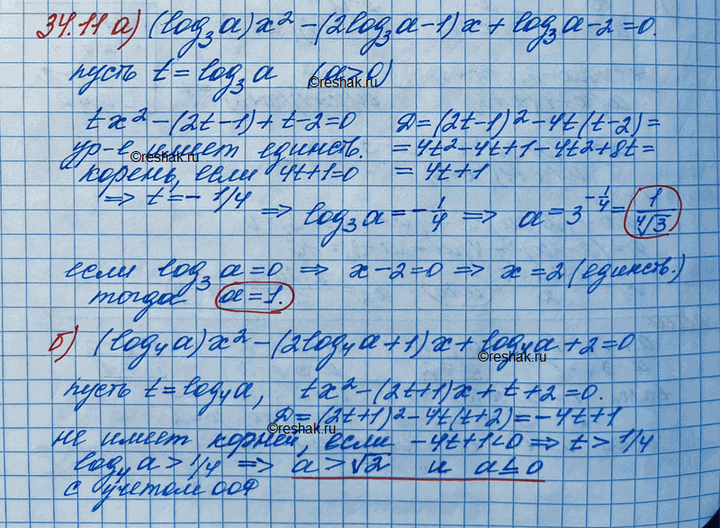 34.11 а) (log₃a)x² - (2log₃a-1)x + log₃a-2=0.
пусть t = log₃a (a>0)
©reshak.ru
tx² - (2t-1) + t-2=0 D=(2t-1)² - 4t(t-2)=
ур-е имеет единств. = 4t²-4t+1-4t²+8t=
©reshak.ru
корень, если 4t+1=0 = 4t+1
⇒ t = - 1/4 ⇒ log₃a = -1/4 ⇒ a = 3^(-1/4) = 1/⁴√3
если log₃a=0 ⇒ x-2=0 ⇒ x=2 (единств.)
тогда a=1.
б) (log₄a)x² - (2log₄a+1)x + log₄a+2=0
©reshak.ru
пусть t=log₄a, tx²-(2t+1)x+t+2=0.
D=(2t+1)²-4t(t+2)=-4t+1
©reshak.ru
не имеет корней, если -4t+1<0 ⇒ t> 1/4
log₄a > 1/4 ⇒ a>√2 и a≤0
с учетом ООФ